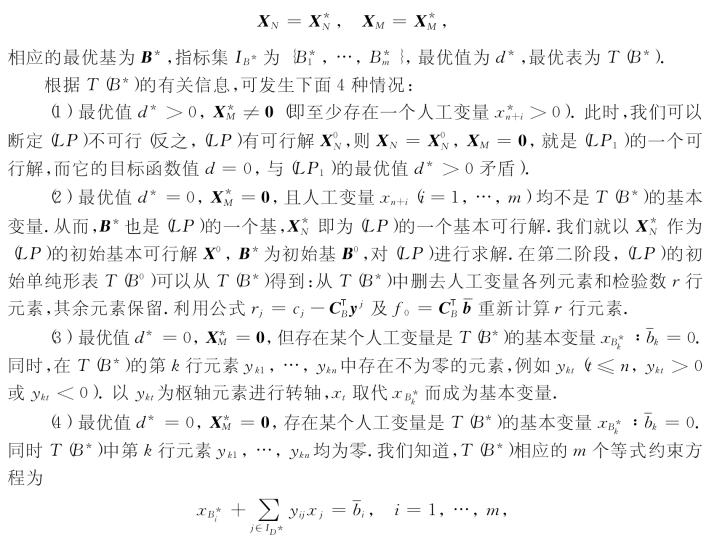 X_N = X_N^*,  X_M = X_M^*,
相应的最优基为 B*,指标集 I_{B*} 为 {B_1^*, …, B_m^*}, 最优值为 d*,最优表为 T(B*).
根据 T(B*)的有关信息,可发生下面 4 种情况:
(1) 最优值 d* > 0, X_M^* ≠ 0 (即至少存在一个人工变量 x_{n+i}^* > 0). 此时,我们可以
断定(LP)不可行(反之,(LP)有可行解 X_N^0,则 X_N = X_N^0, X_M = 0, 就是(LP_1)的一个可
行解,而它的目标函数值 d = 0, 与(LP_1)的最优值 d* > 0 矛盾).
(2) 最优值 d* = 0, X_M^* = 0, 且人工变量 x_{n+i} (i = 1, …, m)均不是 T(B*)的基本
变量.从而,B* 也是(LP)的一个基,X_N^* 即为(LP)的一个基本可行解.我们就以 X_N^* 作为
(LP)的初始基本可行解 X^0, B* 为初始基 B^0,对(LP)进行求解.在第二阶段, (LP)的初
始单纯形表 T(B^0)可以从 T(B*)得到:从 T(B*)中删去人工变量各列元素和检验数 r 行
元素,其余元素保留.利用公式 r_j = c_j − C_B^T y^j 及 f_0 = C_B^T b̄ 重新计算 r 行元素.
(3) 最优值 d* = 0, X_M^* = 0, 但存在某个人工变量是 T(B*)的基本变量 x_{B_k^*}:b̄_k = 0.
同时,在 T(B*)的第 k 行元素 y_{k1}, …, y_{kn}中存在不为零的元素,例如 y_{kt} (t ⩽ n, y_{kt} > 0
或 y_{kt} < 0). 以 y_{kt}为枢轴元素进行转轴,x_t 取代 x_{B_k^*} 而成为基本变量.
(4) 最优值 d* = 0, X_M^* = 0, 存在某个人工变量是 T(B*)的基本变量 x_{B_k^*}:b̄_k = 0.
同时 T(B*)中第 k 行元素 y_{k1}, …, y_{kn}均为零.我们知道,T(B*)相应的 m 个等式约束方
程为
x_{B_i^*} + ∑_{j∈I_{D*}} y_{ij} x_j = b̄_i,  i = 1, …, m,